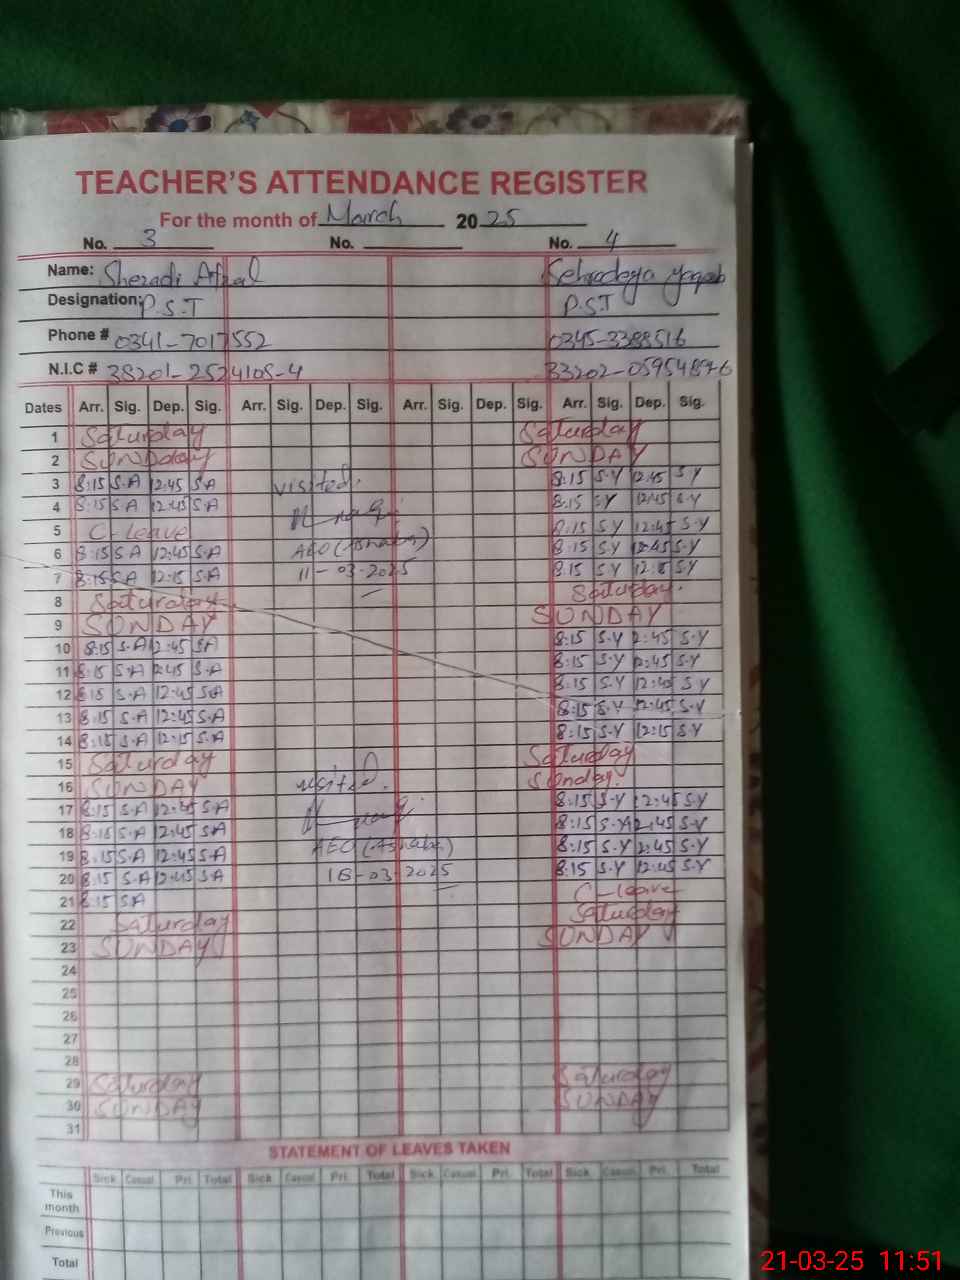 TEACHER'S ATTENDANCE REGISTER
For the month of March 2025
No. 3 No. No. 4
Name: Sheradi Afzal
Designation: P.S.T P.S.T
Phone # 0341-7017552 0345-3388516
N.I.C # 38201-2524105-4 33202-0595489-6
Dates Arr. Sig. Dep. Sig. Arr. Sig. Dep. Sig. Arr. Sig. Dep. Sig. Arr. Sig. Dep. Sig.
1 Saturday Saturday
2 SUNDAY SUNDAY
3 8:15 S.A 12:45 S.A visited. 8:15 S.Y 12:45 S.Y
4 8:15 S.A 12:45 S.A 8:15 S.Y 12:45 S.Y
5 C-leave 8:15 S.Y 12:45 S.Y
6 8:15 S.A 12:45 S.A AEO (Ashaba) 8:15 S.Y 12:45 S.Y
7 8:15 S.A 12:15 S.A 11-03-2025 8:15 S.Y 12:15 S.Y
8 Saturday Saturday.
9 SUNDAY SUNDAY
10 8:15 S.A 12:45 S.A 8:15 S.Y 2:45 S.Y
11 8:15 S.A 2:45 S.A 8:15 S.Y 12:45 S.Y
12 8:15 S.A 12:45 S.A 8:15 S.Y 12:45 S.Y
13 8:15 S.A 12:45 S.A 8:15 S.Y 12:45 S.Y
14 8:15 S.A 12:15 S.A 8:15 S.Y 12:15 S.Y
15 Saturday Saturday
16 SUNDAY visited. Sunday.
17 8:15 S.A 12:45 S.A 8:15 S.Y 12:45 S.Y
18 8:15 S.A 12:45 S.A 8:15 S.Y 12:45 S.Y
19 8:15 S.A 12:45 S.A AEO (Ashaba) 8:15 S.Y 2:45 S.Y
20 8:15 S.A 12:45 S.A 18-03-2025 8:15 S.Y 12:45 S.Y
21 8:15 S.A C-leave
22 Saturday Saturday
23 SUNDAY SUNDAY
24
25
26
27
28
29 Saturday Saturday
30 SUNDAY SUNDAY
31
STATEMENT OF LEAVES TAKEN
Sick Casual Pri. Total Sick Casual Pri. Total Sick Casual Pri. Total Sick Casual Pri. Total
This month
Previous
Total
21-03-25 11:51